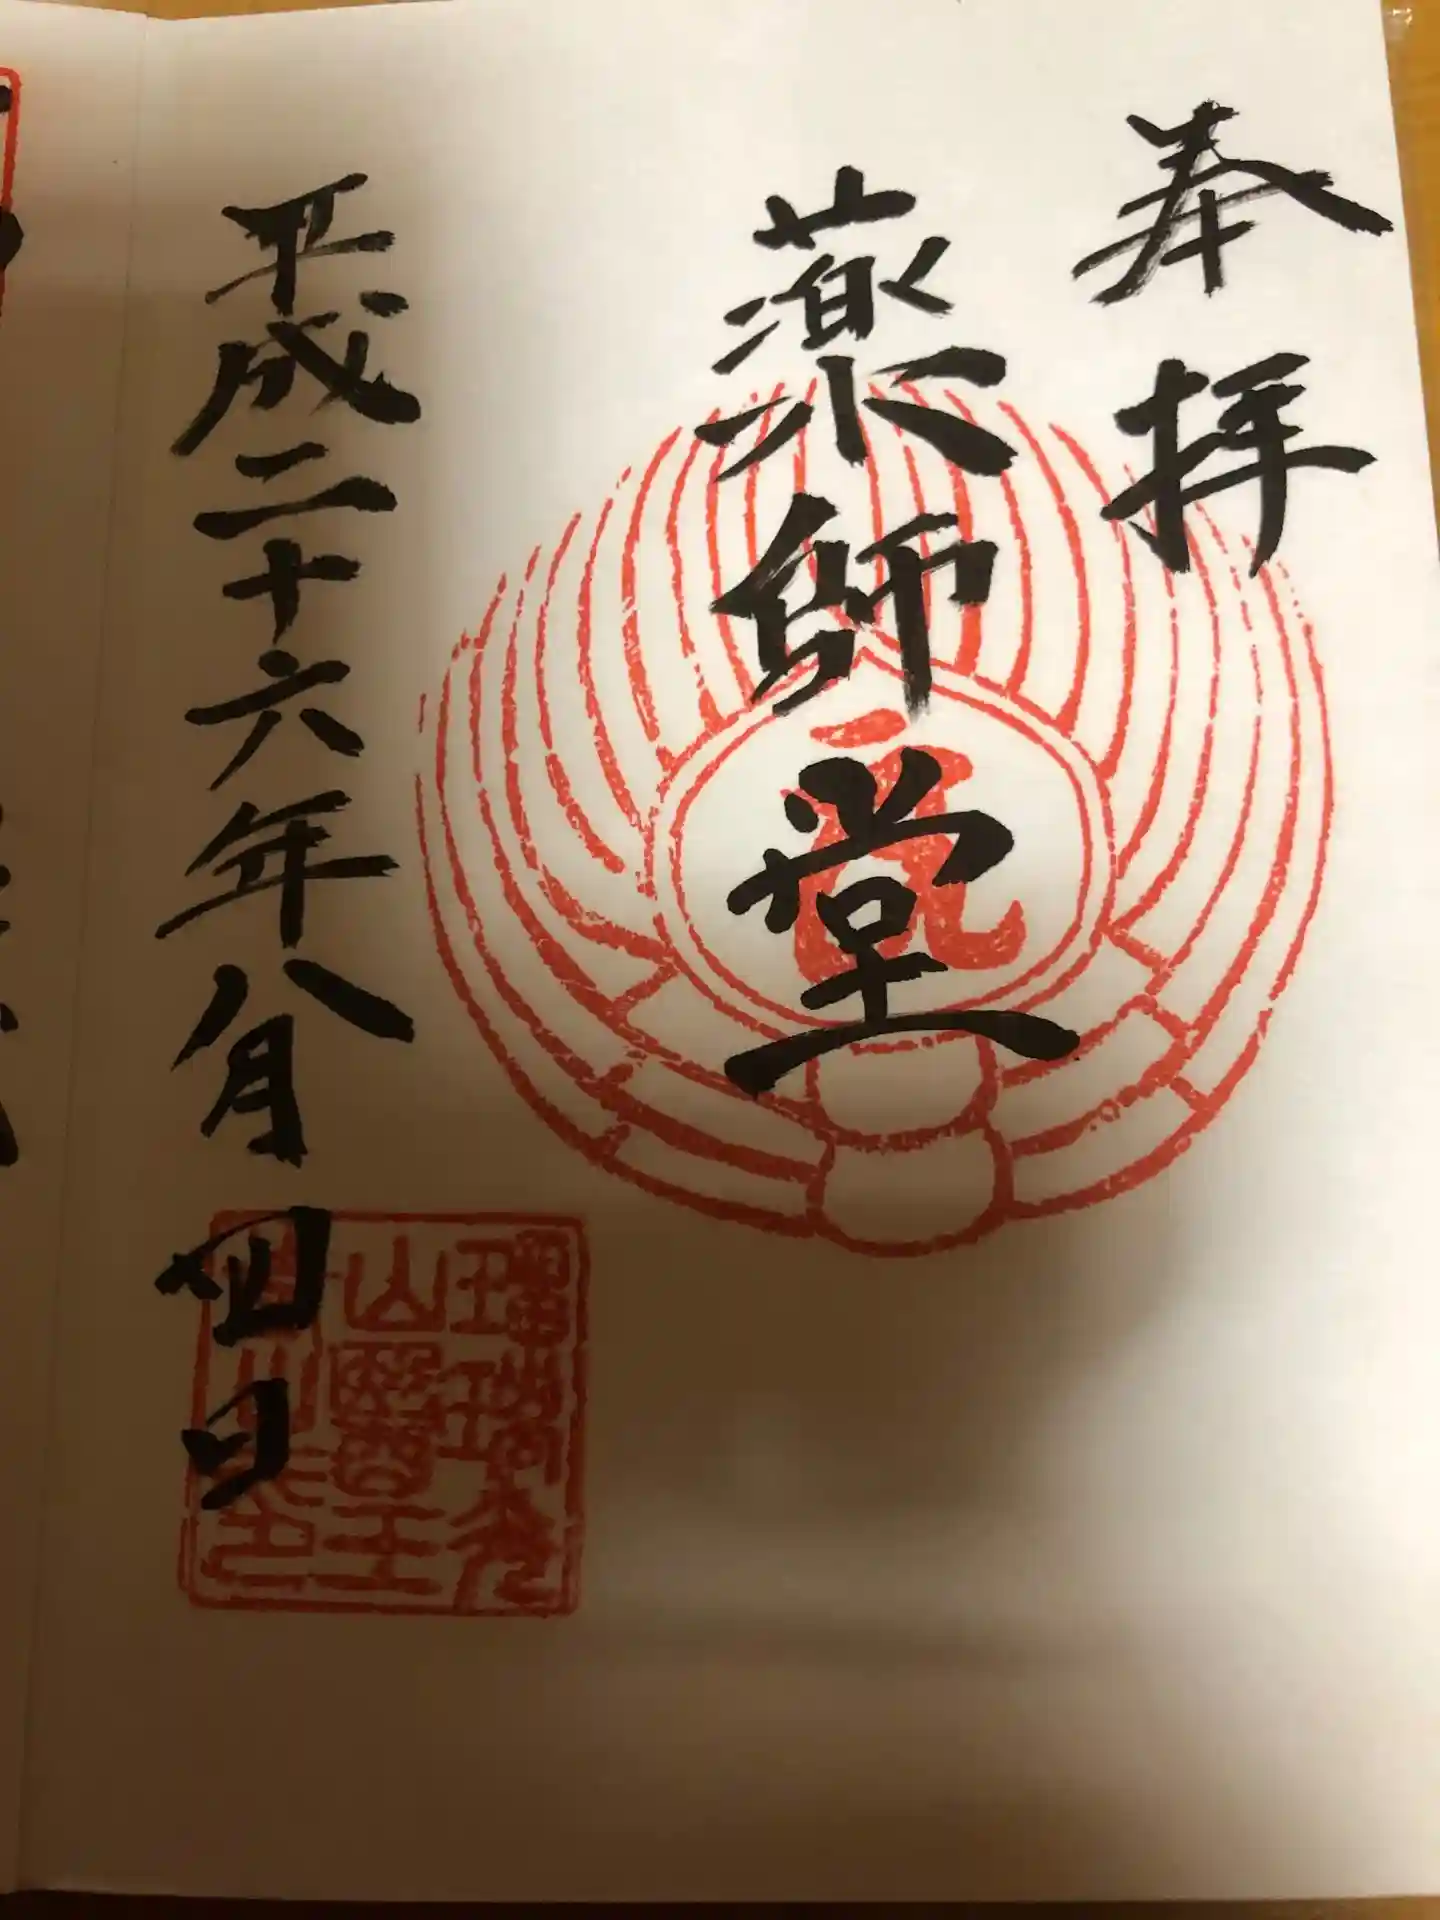 奉拝
薬師堂
平成二十六年八月四日
瑠璃光
山醫王
印